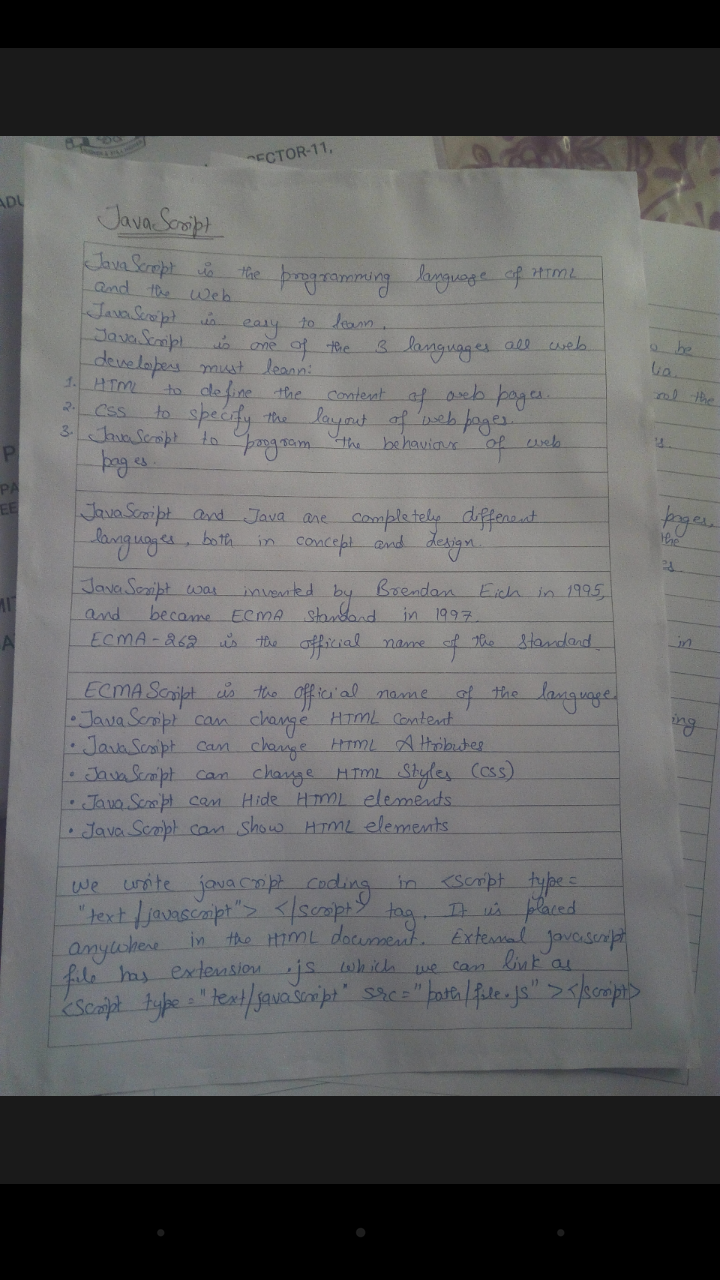 SECTOR-11,
JavaScript
JavaScript is the programming language of HTML
and the Web
JavaScript is easy to learn.
JavaScript is one of the 3 languages all web
developers must learn:
1. HTML to define the content of web pages.
2. CSS to specify the layout of web pages.
3. JavaScript to program the behaviour of web
pages.
JavaScript and Java are completely different
languages, both in concept and design.
JavaScript was invented by Brendan Eich in 1995,
and became ECMA standard in 1997.
ECMA-262 is the official name of the standard.
ECMAScript is the official name of the language.
• JavaScript can change HTML content
• JavaScript can change HTML Attributes
• JavaScript can change HTML Styles (CSS)
• JavaScript can Hide HTML elements
• JavaScript can Show HTML elements
We write javacript coding in <script type=
"text/javascript"> </script> tag. It is placed
anywhere in the HTML document. External javascript
file has extension .js which we can link as
<script type="text/javascript" src="path/file.js"></script>
be
the
pages.
the
in